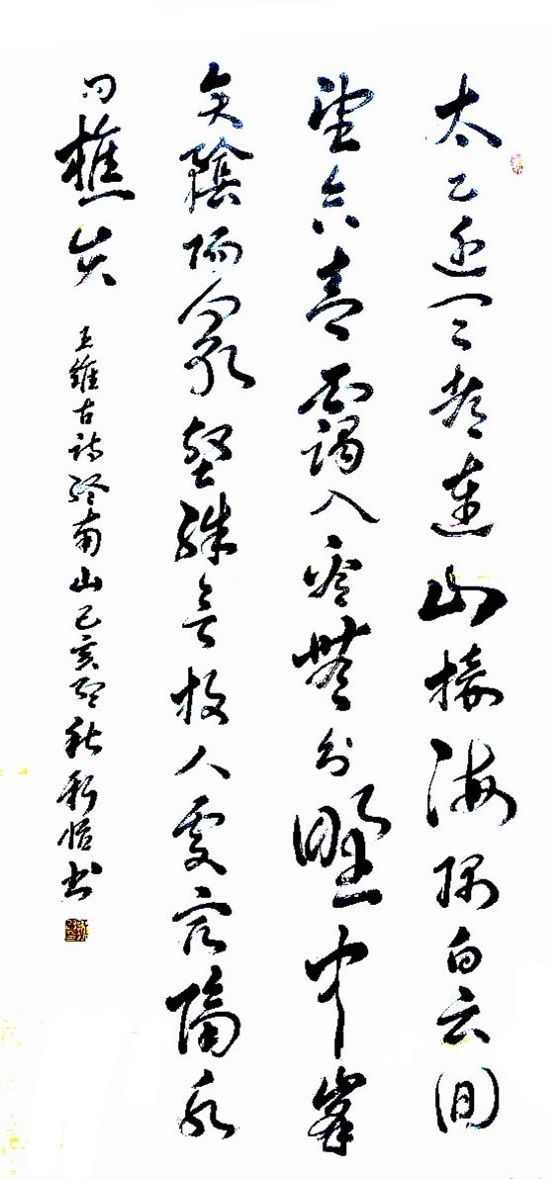 太乙近天都連山接海隅白云回
望合青靄入看無分野中峯
變陰晴眾壑殊欲投人處宿隔水
問樵夫
王維古詩終南山己亥秋書